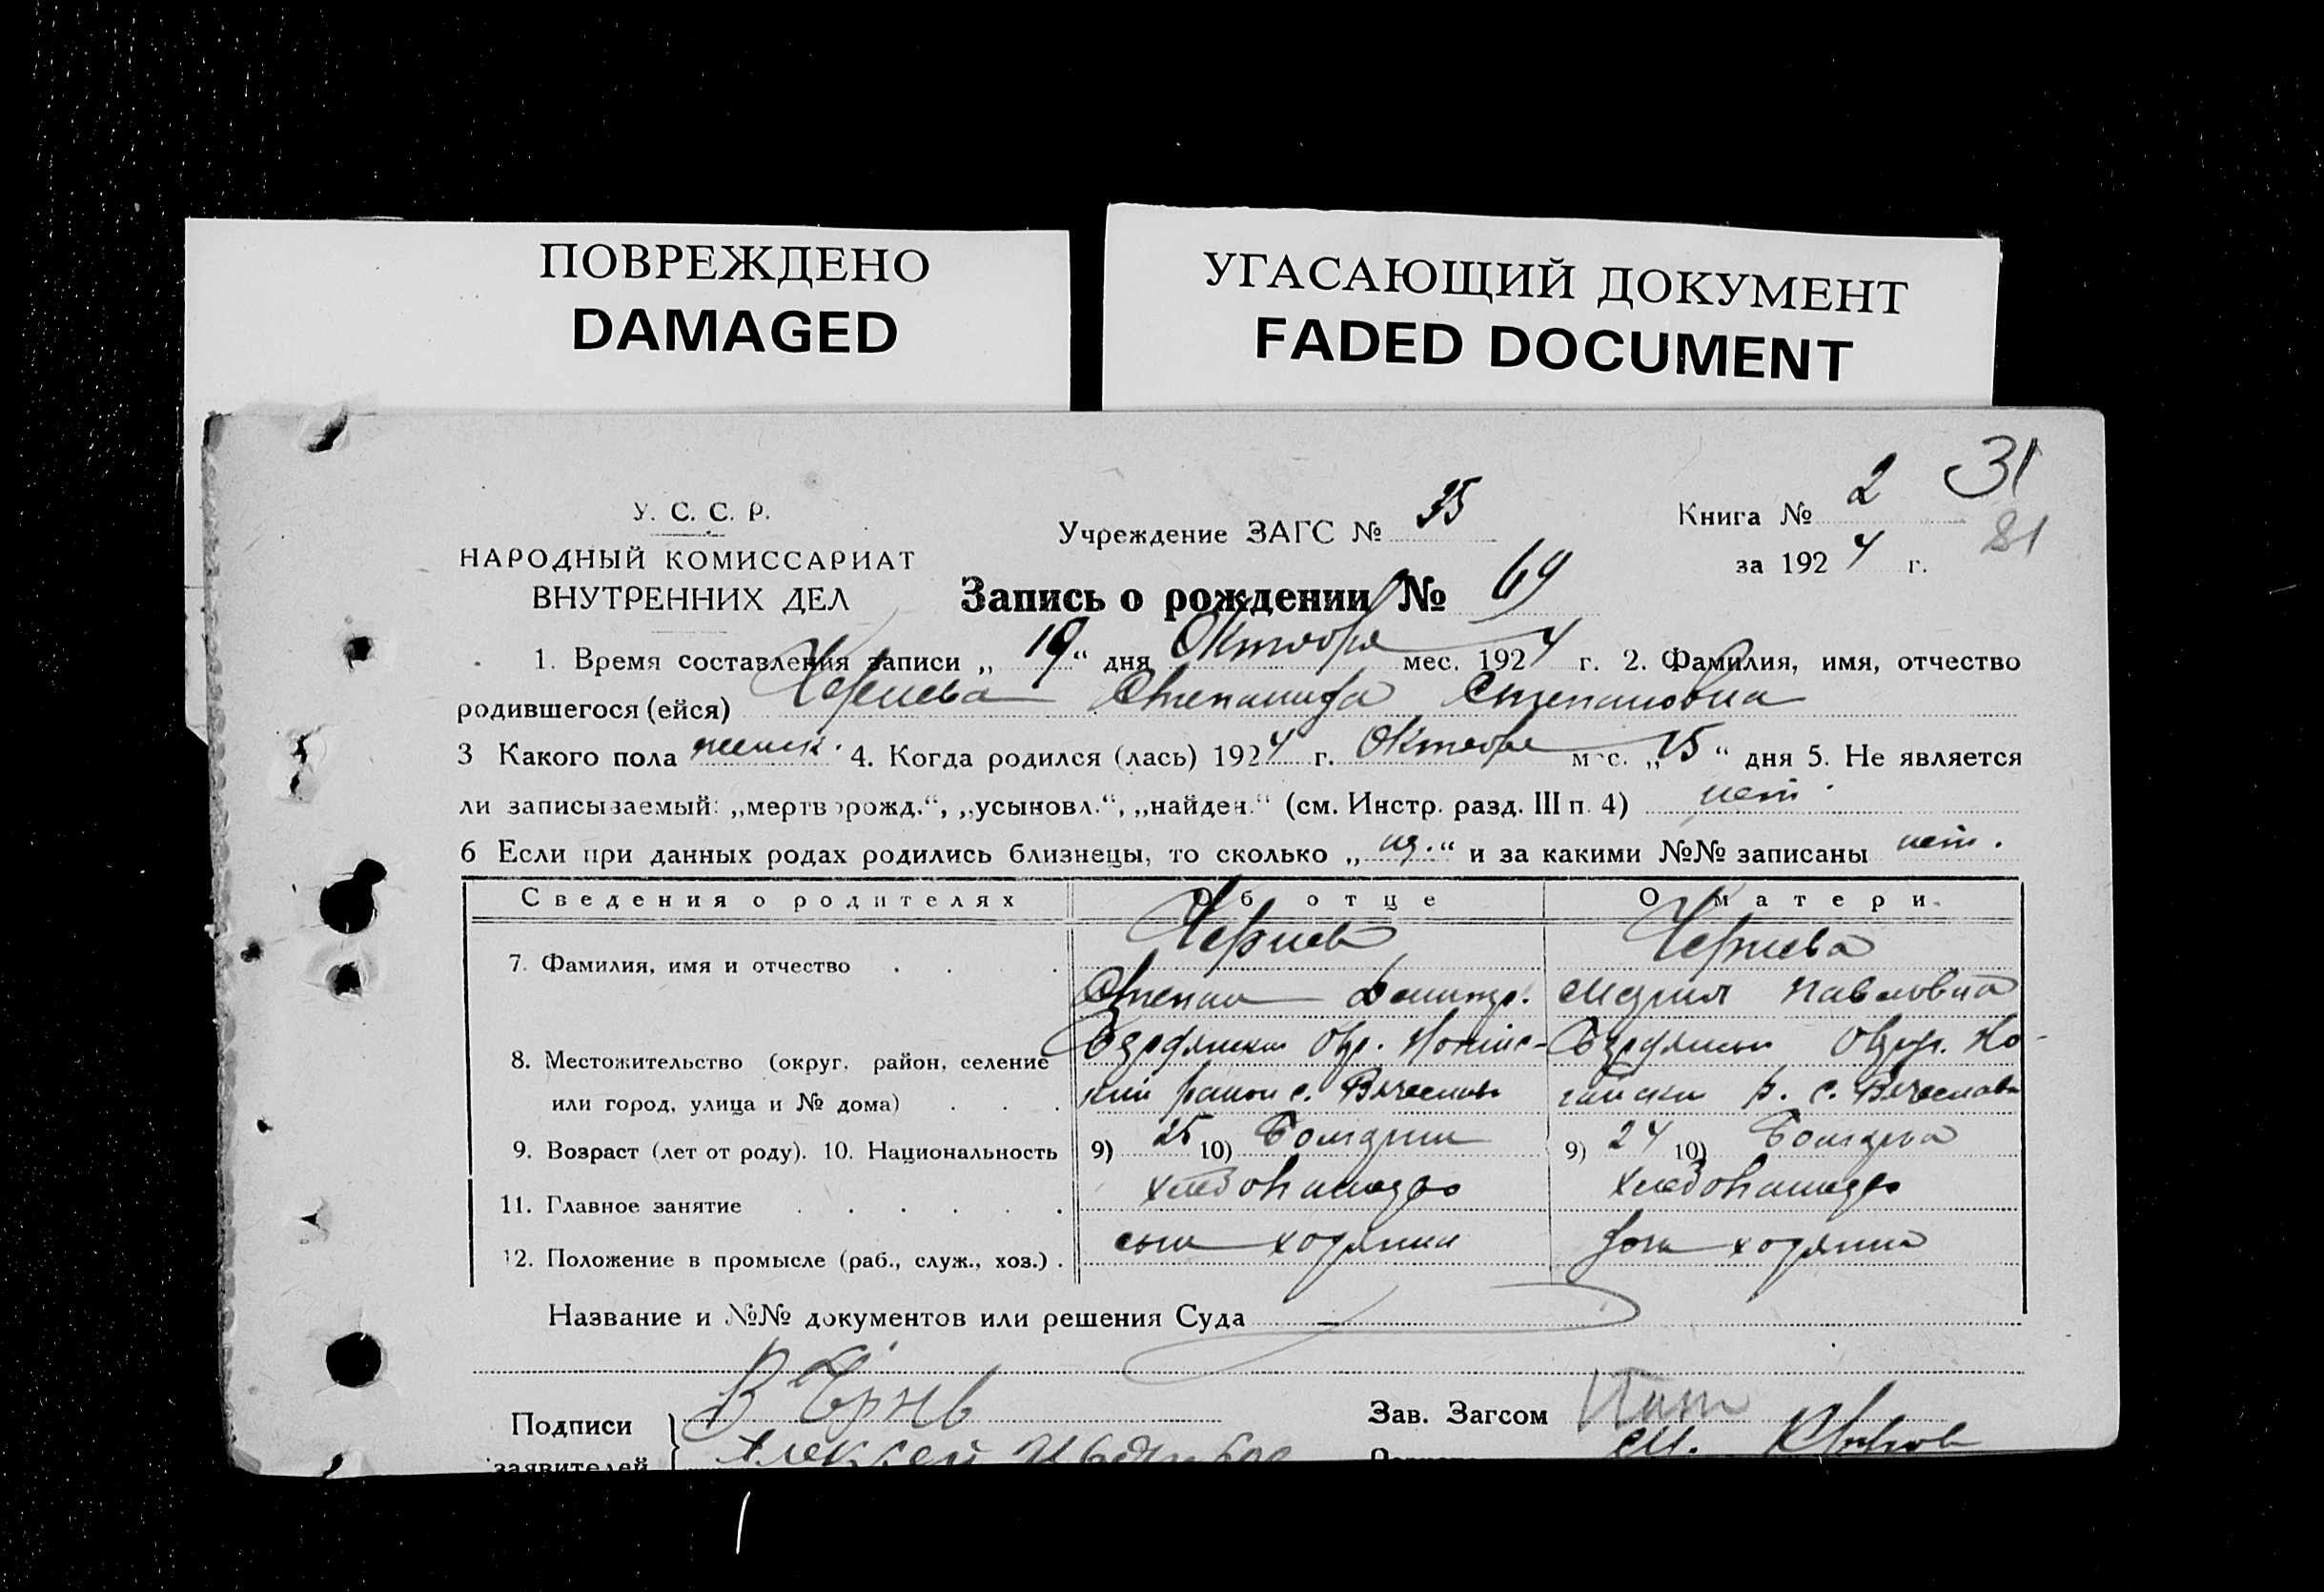 ПОВРЕЖДЕНО
DAMAGED
УГАСАЮЩИЙ ДОКУМЕНТ
FADED DOCUMENT
31
81
У. С. С. Р.
НАРОДНЫЙ КОМИССАРИАТ
ВНУТРЕННИХ ДЕЛ
Учреждение ЗАГС № 35
Книга № 2
за 1924 г.
Запись о рождении № 69
1. Время составления записи „ 19 “ дня Октября мес. 1924 г. 2. Фамилия, имя, отчество
родившегося (ейся) Чернева Степанида Степановна
3 Какого пола женск. 4. Когда родился (лась) 1924 г. Октября мес. „ 15 “ дня 5. Не является
ли записываемый: „мертворожд.“, „усыновл.“, „найден.“ (см. Инстр. разд. III п. 4) нет.
6 Если при данных родах родились близнецы, то сколько „ “ и за какими №№ записаны нет.
Сведения о родителях Об отце О матери
7. Фамилия, имя и отчество Чернев Чернева
Степан Мария Павловна
8. Местожительство (округ, район, селение Бердянски Окр. Ногайс- Бердянски Округ. Но-
или город, улица и № дома) кий район с. Вячеславка гайски р. с. Вячеславка
9. Возраст (лет от роду). 10. Национальность 9) 25 10) Болгарин 9) 24 10) Болгарка
11. Главное занятие хлебопашество хлебопашество
12. Положение в промысле (раб., служ., хоз.) сын хозяина жена хозяина
Название и №№ документов или решения Суда
Подписи
заявителей
Алексей
Зав. Загсом